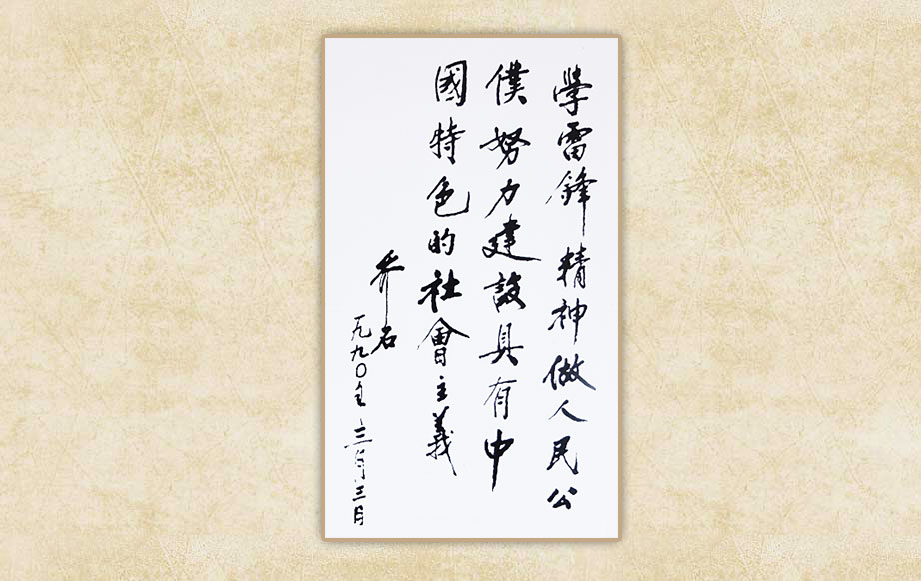 學雷鋒精神做人民公
僕努力建設具有中
國特色的社會主義
乔石
一九九〇年三月三日